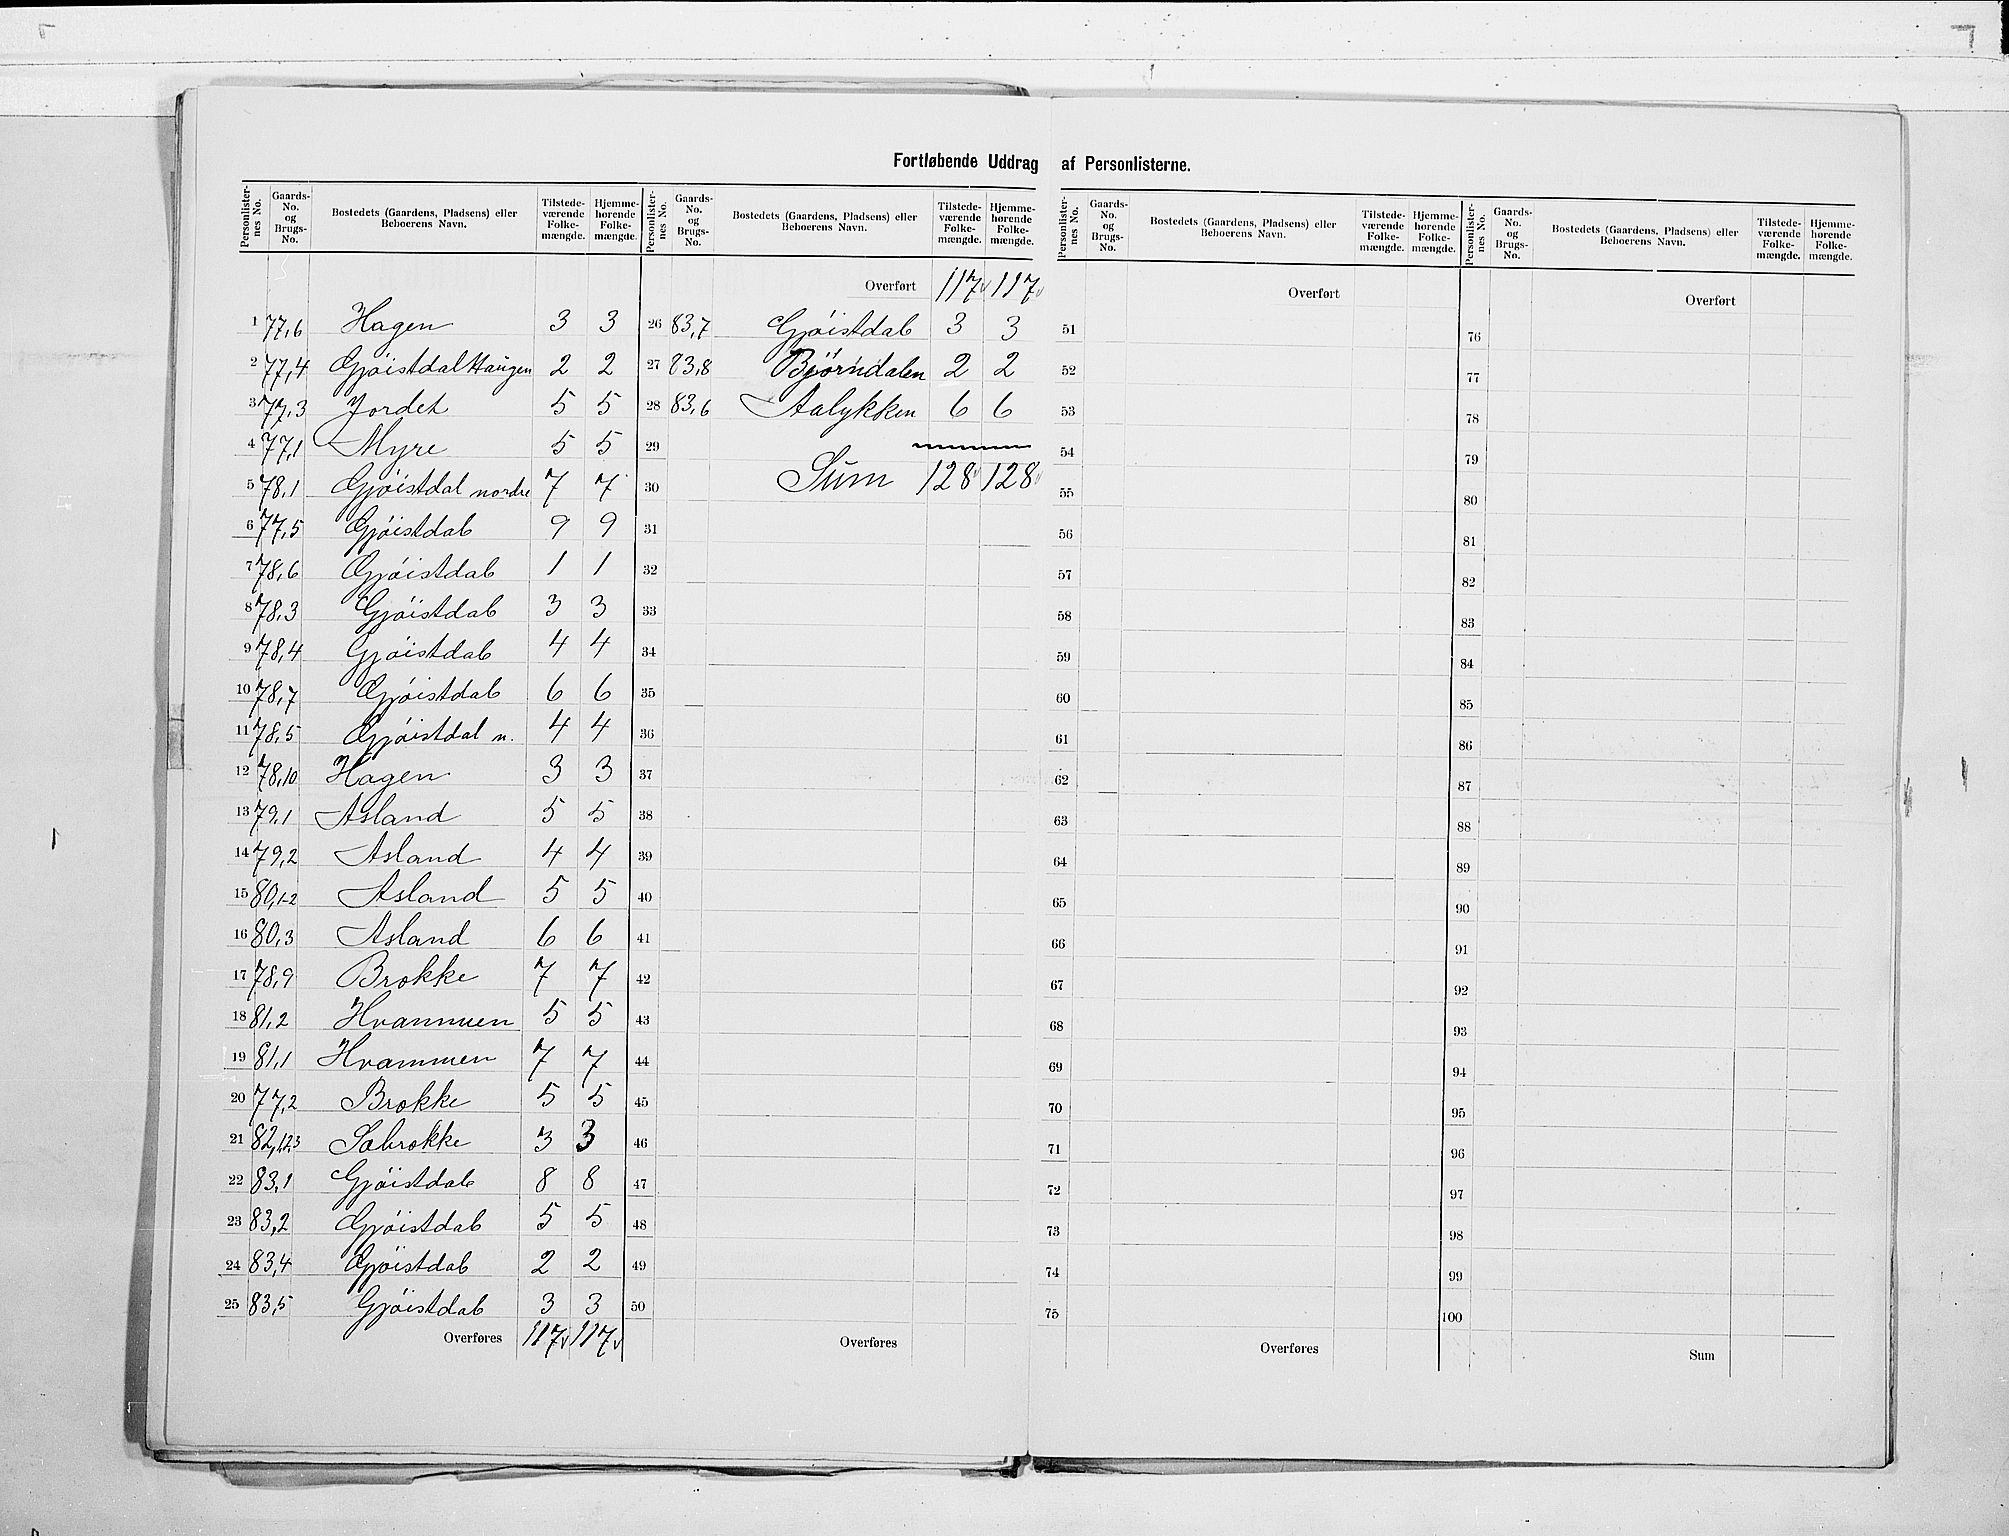 Fortløbende Uddrag af Personlisterne.
Personlister-nes No. | Gaards-No. og Brugs-No. | Bostedets (Gaardens, Pladsens) eller Beboerens Navn. | Tilstede-værende Folke-mængde. | Hjemme-hørende Folke-mængde.
1 77,6 Hagen 3 3
2 77,4 Gjøistdal Haugen 2 2
3 77,3 Jordet 5 5
4 77,1 Myre 5 5
5 78,1 Gjøistdal nordre 7 7
6 77,5 Gjøistdal 9 9
7 78,6 Gjøistdal 1 1
8 78,3 Gjøistdal 3 3
9 78,4 Gjøistdal 4 4
10 78,7 Gjøistdal 6 6
11 78,5 Gjøistdal n. 4 4
12 78,10 Hagen 3 3
13 79,1 Asland 5 5
14 79,2 Asland 4 4
15 80,1-2 Asland 5 5
16 80,3 Asland 6 6
17 78,9 Brokke 7 7
18 81,2 Hvammen 5 5
19 81,1 Hvammen 7 7
20 77,2 Brokke 5 5
21 82,123 Sabrokke 3 3
22 83,1 Gjøistdal 8 8
23 83,2 Gjøistdal 5 5
24 83,4 Gjøistdal 2 2
25 83,5 Gjøistdal 3 3
Overføres 117 117
Personlister-nes No. | Gaards-No. og Brugs-No. | Bostedets (Gaardens, Pladsens) eller Beboerens Navn. | Tilstede-værende Folke-mængde. | Hjemme-hørende Folke-mængde.
Overført 117 117
26 83,7 Gjøistdal 3 3
27 83,8 Bjørndalen 2 2
28 83,6 Aalykken 6 6
29
30 Sum 128 128
31
32
33
34
35
36
37
38
39
40
41
42
43
44
45
46
47
48
49
50
Overføres
Personlister-nes No. | Gaards-No. og Brugs-No. | Bostedets (Gaardens, Pladsens) eller Beboerens Navn. | Tilstede-værende Folke-mængde. | Hjemme-hørende Folke-mængde.
Overført
51
52
53
54
55
56
57
58
59
60
61
62
63
64
65
66
67
68
69
70
71
72
73
74
75
Overføres
Personlister-nes No. | Gaards-No. og Brugs-No. | Bostedets (Gaardens, Pladsens) eller Beboerens Navn. | Tilstede-værende Folke-mængde. | Hjemme-hørende Folke-mængde.
Overført
76
77
78
79
80
81
82
83
84
85
86
87
88
89
90
91
92
93
94
95
96
97
98
99
100
Sum